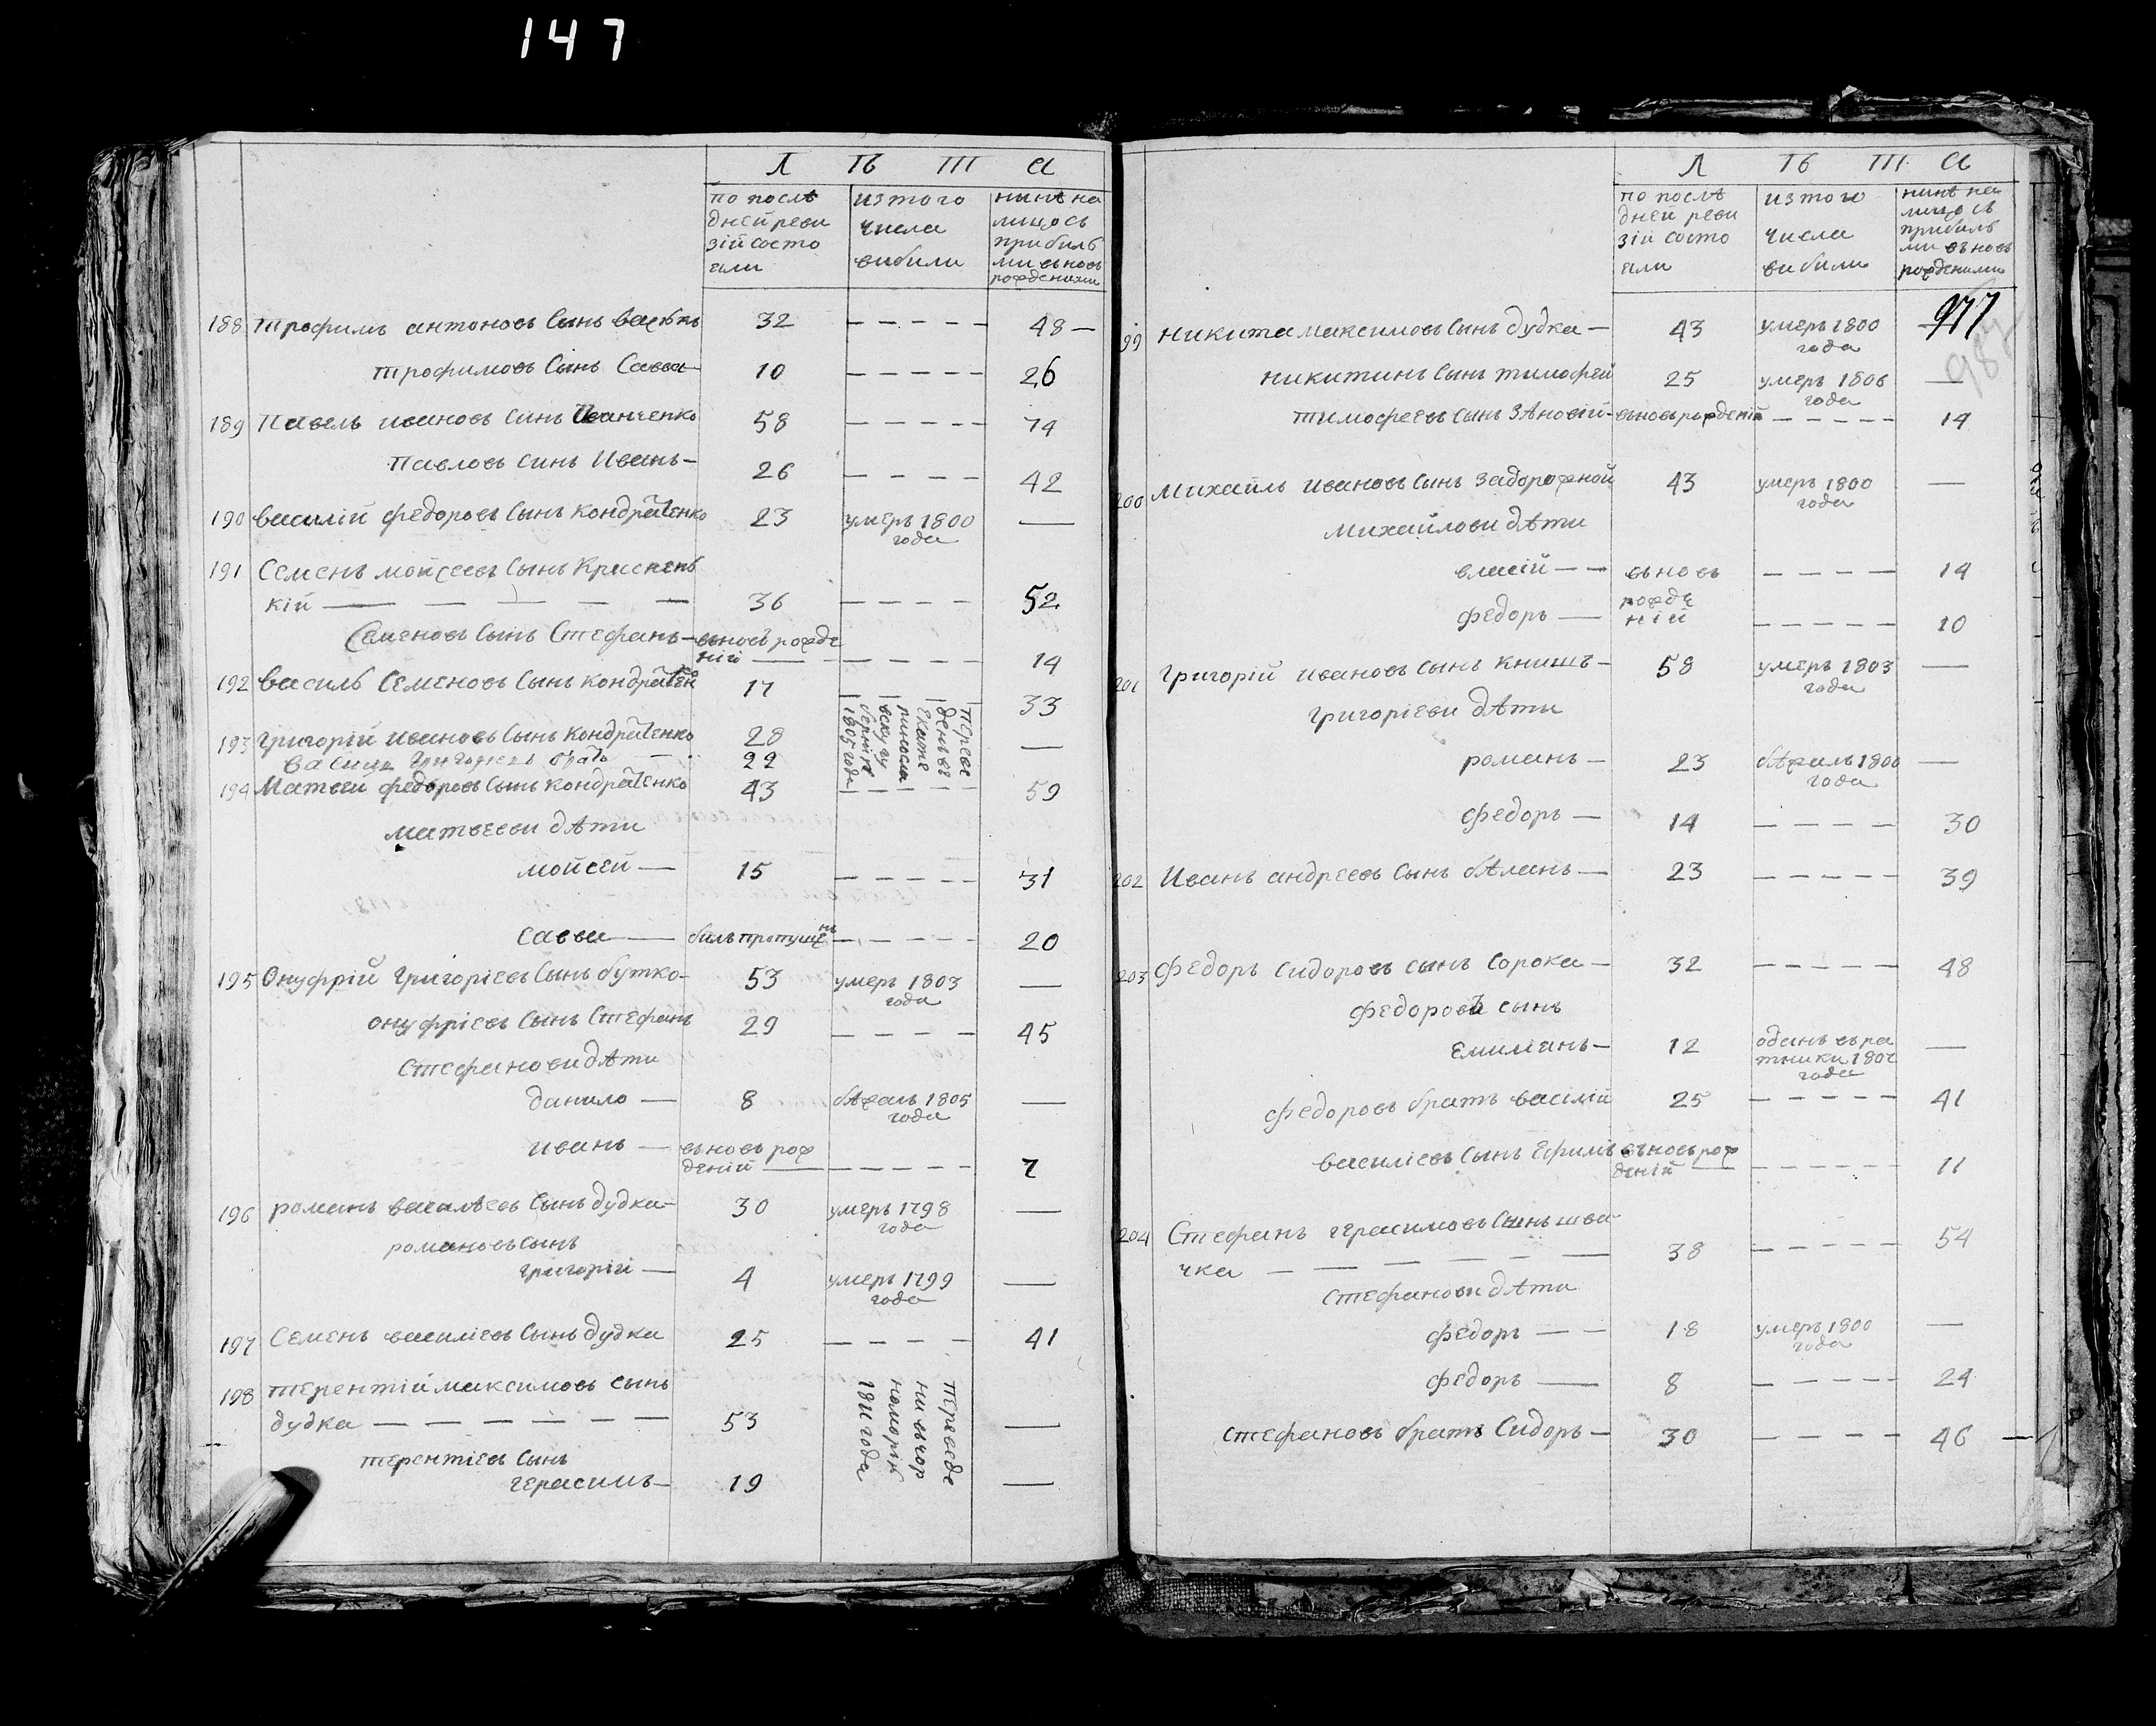 147
Л ѣ т а
по послѣ
дней реви
зій состо
яли
изъ того
числа
выбыли
нынѣ на
лицо съ
прибылы
ми вьновь
рожденими
188 трофимъ антоновъ Сынъ 32 – – – – – 48 –
трофимовъ Сынъ Савва – 10 – – – – – 26
189 Павелъ ивановъ Синъ Иванченко 58 – – – – – 74
Павловъ синъ Иванъ – 26 – – – – – 42
190 василій федоровъ Сынъ Кондратенко 23 умеръ 1800 —
года
191 Семенъ мойсеевъ Сынъ Краснень
кій — — — — — 36 – – – – – 52
Семеновъ Сынъ Стефанъ – вьновъ рожде
ній — – – – – – 14
192 василь Семеновъ Сынъ Кондратенко 17 – – – – – 33
193 григорій ивановъ Сынъ Кондратенко 28 —
братъ — 22
переве
денъ въ
Екате
риносла
вску гу
бернію
1805 года
194 Матвей федоровъ Сынъ Кондратенко 43 – – – – – 59
матвееви дѣти
мойсей — 15 – – – – – 31
савва — билъ пропущенъ – – – – – 20
195 Онуфрій григоріевъ Сынъ бутко – 53 умеръ 1803 —
года
онуфріевъ Сынъ Стефанъ 29 – – – – – 45
Стефанови дѣти
данило — 8 бѣжалъ 1805 —
года
иванъ — вьновь рож
деній — – – – – – 7
196 романъ василѣевъ Сынъ дудка – 30 умеръ 1798 —
года
романовъ сынъ
григорій — 4 умеръ 1799 —
года
197 Семенъ василіевъ Сынъ дудка 25 – – – – – 41
198 терентій максимовъ сынъ
дудка — — — — — — 53 —
терентіевъ сынъ
герасимъ – 19 —
переведе
ни вьчор
наморію
1811 года
Л ѣ т а
по послѣ
дней реви
зій состо
яли
изъ того
числа
вибили
нинѣ на
лицо съ
прибилы
ми вьновь
рожденими
977
987
99 никита максимовъ Сынъ дудка — 43 умеръ 1800 —
года
никитинъ Сынъ тимофей 25 умеръ 1806 —
года
тимофеевъ Сынъ Зѣновій – вьновь рожденій – – – – – 14
200 Михайлъ ивановъ Сынъ Задорожной 43 умеръ 1800 —
года
Михайлови дѣти
власій — – вьновь – – – – 14
рожде
федоръ — ній – – – – – 10
201 григорій ивановъ сынъ Книшъ – 58 умеръ 1803 —
года
григоріеви дѣти
романъ – 23 бѣжалъ 1800 —
года
федоръ — 14 – – – – – 30
202 Иванъ андреевъ Сынъ бѣланъ — 23 – – – – – 39
203 федоръ Сидоровъ сынъ Сорока – 32 – – – – – 48
федоровъ сынъ
Емиліанъ – 12 —
года
федоровъ братъ василій 25 – – – – – 41
василіевъ Сынъ Ефимъ вьновь рож
деній — – – – – – 11
204 Стефанъ герасимовъ Сынъ шва
чка — — — — — 38 – – – – – 54
Стефанови дѣти
федоръ — – 18 умеръ 1800 —
года
федоръ — 8 – – – – – 24
стефановъ братъ Сидоръ – 30 – – – – 46 —